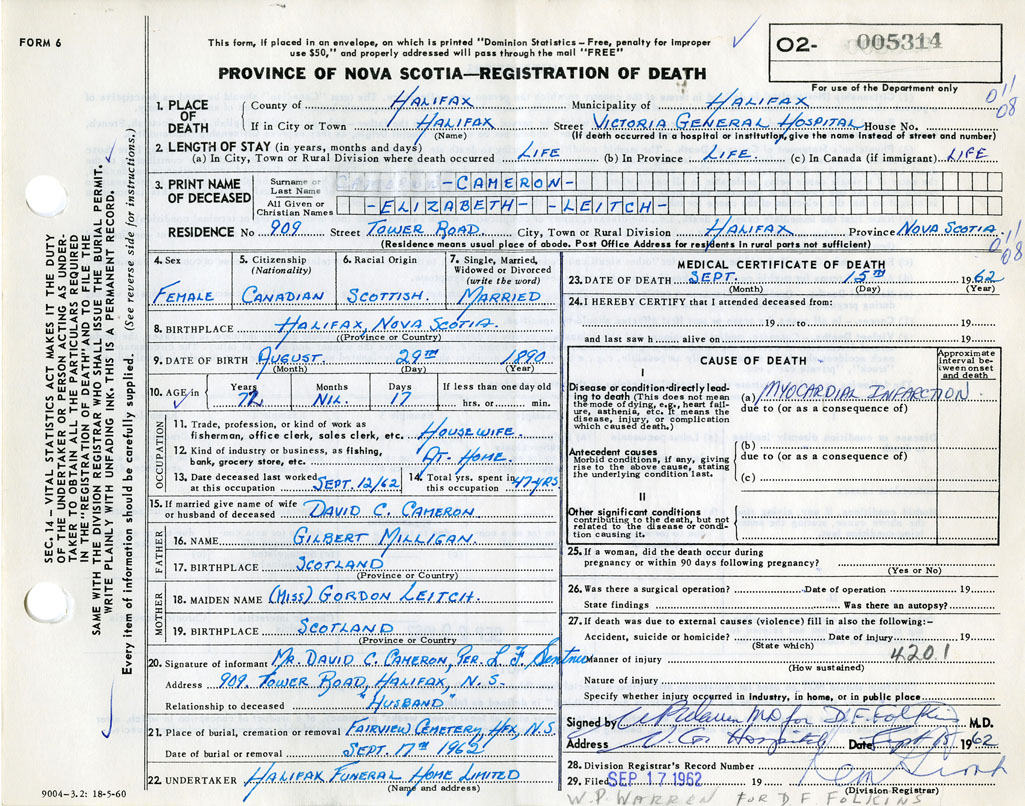 FORM 6
This form, if placed in an envelope, on which is printed "Dominion Statistics – Free, penalty for improper
use $50," and properly addressed will pass through the mail "FREE"
PROVINCE OF NOVA SCOTIA—REGISTRATION OF DEATH
02- 005314
For use of the Department only
011
08
SEC. 14 – VITAL STATISTICS ACT MAKES IT THE DUTY
OF THE UNDERTAKER OR PERSON ACTING AS UNDER-
TAKER TO OBTAIN ALL THE PARTICULARS REQUIRED
IN THE "REGISTRATION OF DEATH" AND TO FILE THE
SAME WITH THE DIVISION REGISTRAR WHO SHALL ISSUE THE BURIAL PERMIT.
WRITE PLAINLY WITH UNFADING INK. THIS IS A PERMANENT RECORD.
Every item of information should be carefully supplied. (See reverse side for instructions.)
1. PLACE OF DEATH
County of HALIFAX Municipality of HALIFAX
If in City or Town HALIFAX Street VICTORIA GENERAL HOSPITAL House No.
(Name) (If death occurred in a hospital or institution, give the name instead of street and number)
2. LENGTH OF STAY (in years, months and days)
(a) In City, Town or Rural Division where death occurred LIFE (b) In Province LIFE (c) In Canada (if immigrant) LIFE
3. PRINT NAME OF DECEASED
Surname or Last Name -CAMERON-
All Given or Christian Names -ELIZABETH- -LEITCH-
RESIDENCE No 909 Street TOWER ROAD City, Town or Rural Division HALIFAX Province NOVA SCOTIA
(Residence means usual place of abode. Post Office Address for residents in rural parts not sufficient)
011
08
4. Sex FEMALE
5. Citizenship (Nationality) CANADIAN
6. Racial Origin SCOTTISH
7. Single, Married, Widowed or Divorced (write the word) MARRIED
8. BIRTHPLACE HALIFAX, NOVA SCOTIA.
((Province or Country)
9. DATE OF BIRTH AUGUST 29TH 1890
(Month) (Day) (Year)
10. AGE in Years 72 Months NIL. Days 17 If less than one day old hrs. or min.
OCCUPATION
11. Trade, profession, or kind of work as
fisherman, office clerk, sales clerk, etc. HOUSEWIFE.
12. Kind of industry or business, as fishing,
bank, grocery store, etc. AT HOME.
13. Date deceased last worked at this occupation SEPT. 12/62
14. Total yrs. spent in this occupation 47 YRS
15. If married give name of wife
or husband of deceased DAVID C. CAMERON
FATHER
16. NAME GILBERT MILLIGAN.
17. BIRTHPLACE SCOTLAND
(Province or Country)
MOTHER
18. MAIDEN NAME (MISS) GORDON LEITCH.
19. BIRTHPLACE SCOTLAND
(Province or Country
20. Signature of informant MR. DAVID C. CAMERON, PER. L. F.
Address 909. TOWER ROAD, HALIFAX, N.S.
Relationship to deceased "HUSBAND"
21. Place of burial, cremation or removal FAIRVIEW CEMETERY, HFX, N.S.
Date of burial or removal SEPT. 17TH 1962
22. UNDERTAKER HALIFAX FUNERAL HOME LIMITED
(Name and address)
9004-3.2: 18-5-60
MEDICAL CERTIFICATE OF DEATH
23. DATE OF DEATH SEPT. 15TH 1962
(Month) (Day) (Year)
24. I HEREBY CERTIFY that I attended deceased from:
19 to 19
and last saw h alive on 19
CAUSE OF DEATH
Approximate interval be- tween onset and death
I
Disease or condition directly lead-
ing to death (This does not mean
the mode of dying, e.g., heart fail-
ure, asthenia, etc. It means the
disease, injury, or complication
which caused death.)
(a) MYOCARDIAL INFARCTION
due to (or as a consequence of)
Antecedent causes
Morbid conditions, if any, giving
rise to the above cause, stating
the underlying condition last.
(b)
due to (or as a consequence of)
(c)
II
Other significant conditions
contributing to the death, but not
related to the disease or condi-
tion causing it.
25. If a woman, did the death occur during
pregnancy or within 90 days following pregnancy?
(Yes or No)
26. Was there a surgical operation? Date of operation 19
State findings Was there an autopsy?
27. If death was due to external causes (violence) fill in also the following:–
Accident, suicide or homicide? Date of injury 19
(State which)
Manner of injury 4201
(How sustained)
Nature of injury
Specify whether injury occurred in industry, in home, or in public place
Signed by W P Warren MD for D. F. Folkins M.D.
Address V. G. Hospital Date Sept 15 1962
28. Division Registrar's Record Number
29. Filed SEP 17 1962 19
(Division Registrar)
W. P. WARREN FOR D F FOLKINS